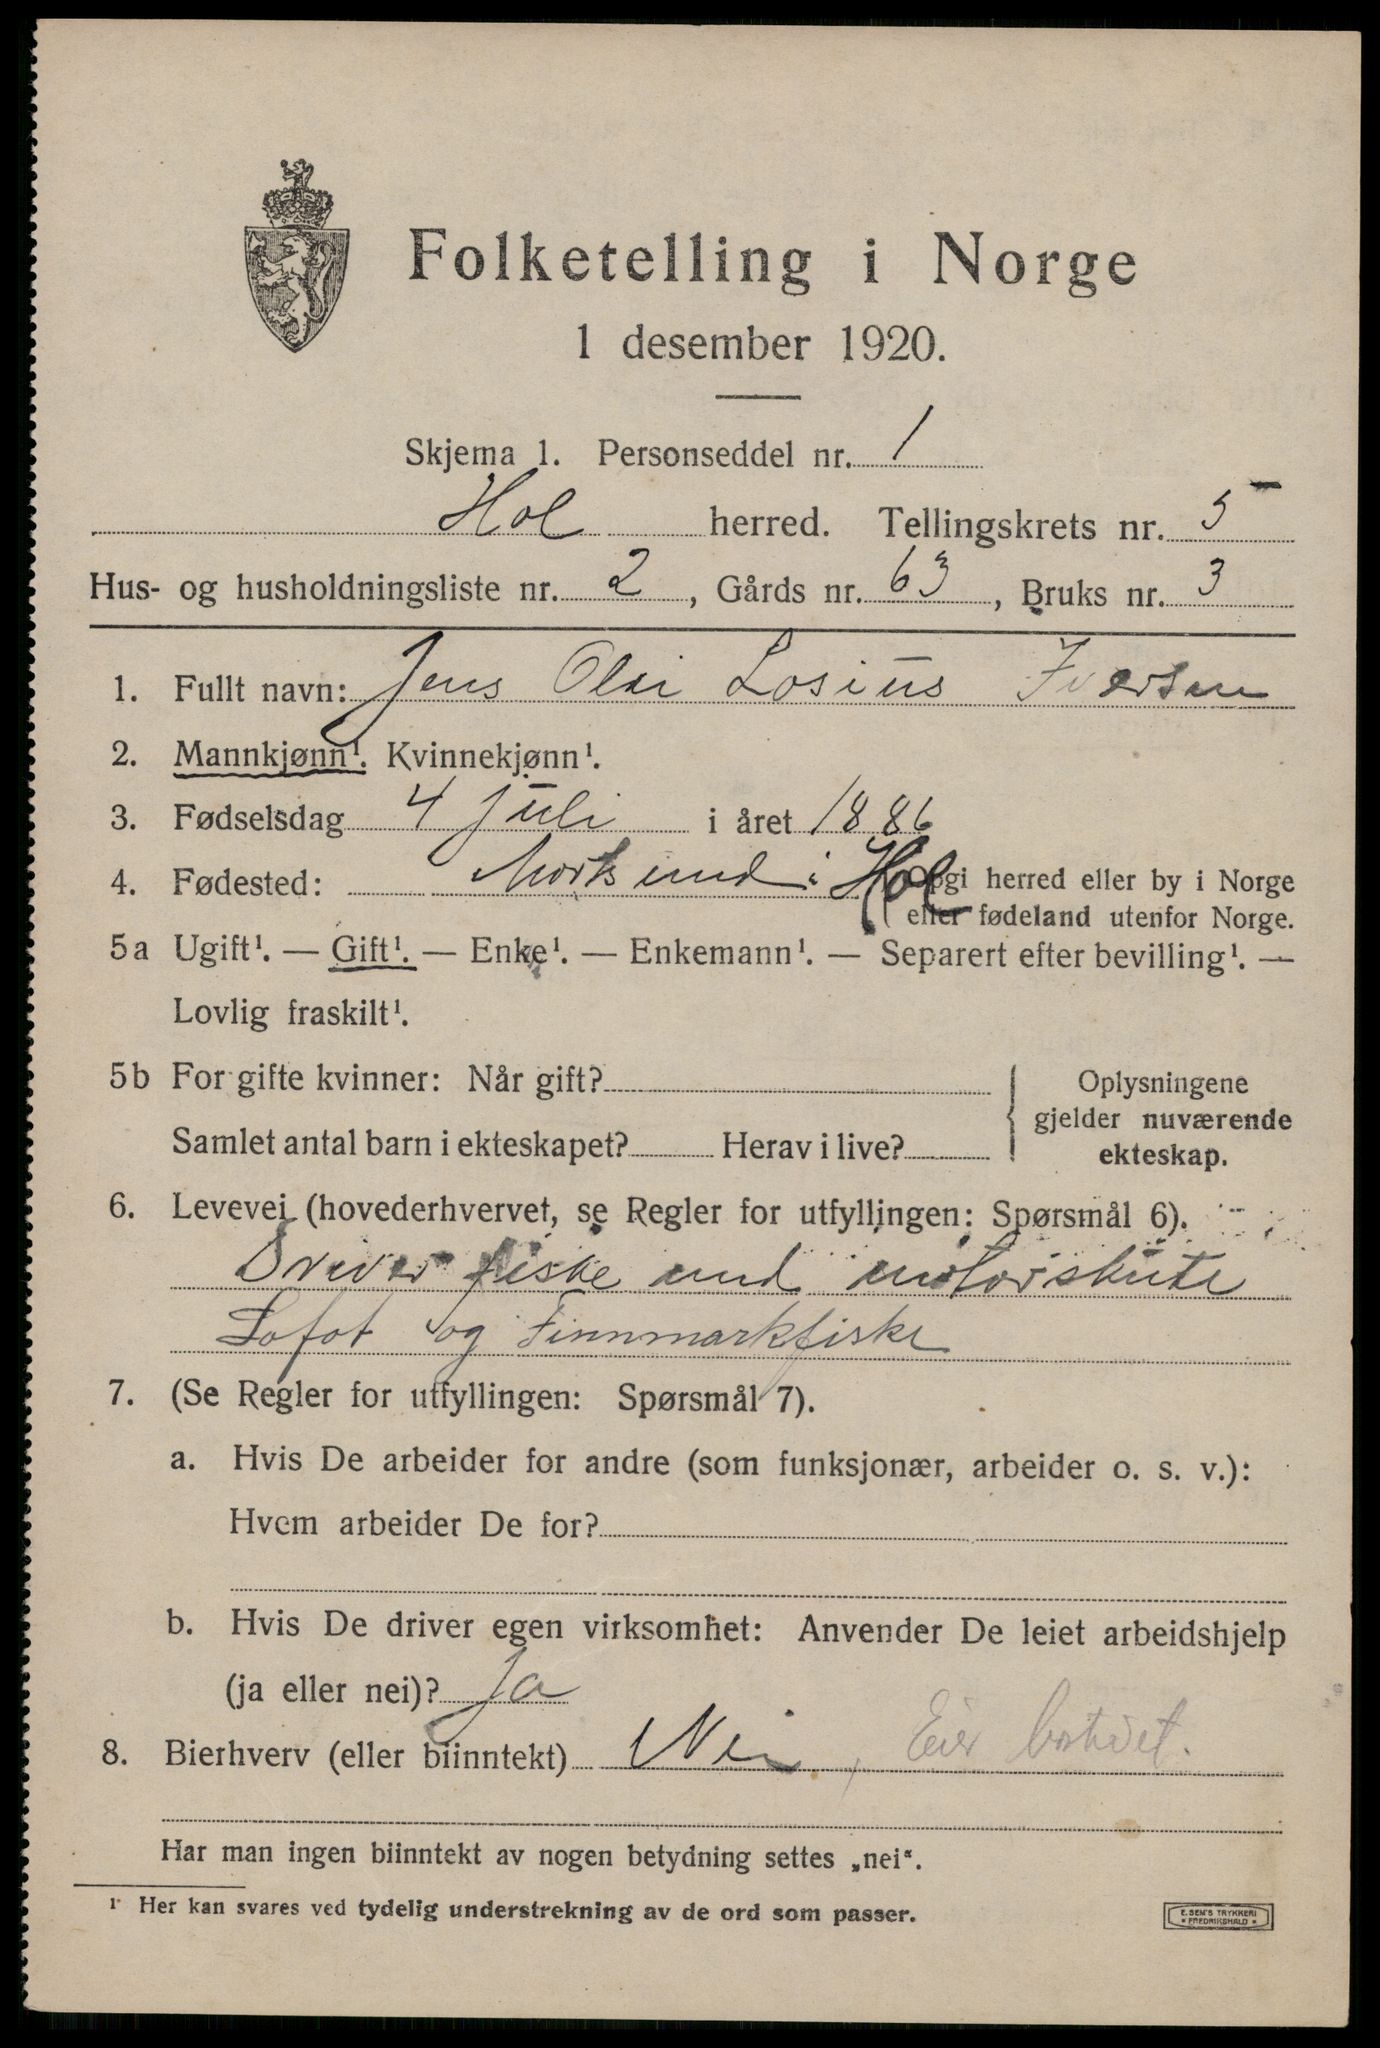 Folketelling i Norge
1 desember 1920.
Skjema 1. Personseddel nr. 1
Hol herred. Tellingskrets nr. 5
Hus- og husholdningsliste nr. 2, Gårds nr. 63, Bruks nr. 3
1. Fullt navn: Jens Olai Losius Iversen
2. Mannkjønn¹. Kvinnekjønn¹.
3. Fødselsdag 4 Juli i året 1886
4. Fødested: Mortsund i Hol Opgi herred eller by i Norge
eller fødeland utenfor Norge.
5a Ugift¹. — Gift¹. — Enke¹. — Enkemann¹. — Separert efter bevilling¹. —
Lovlig fraskilt¹.
5b For gifte kvinner: Når gift?
Samlet antal barn i ekteskapet? Herav i live?
Oplysningene
gjelder nuværende
ekteskap.
6. Levevei (hovederhvervet, se Regler for utfyllingen: Spørsmål 6).
Driver fiske med motorskute
Lofot og Finnmarkfiske
7. (Se Regler for utfyllingen: Spørsmål 7).
a. Hvis De arbeider for andre (som funksjonær, arbeider o. s. v.):
Hvem arbeider De for?
b. Hvis De driver egen virksomhet: Anvender De leiet arbeidshjelp
(ja eller nei)? Ja
8. Bierhverv (eller biinntekt) Nei, Eier
Har man ingen biinntekt av nogen betydning settes „nei“.
¹ Her kan svares ved tydelig understrekning av de ord som passer.
E. SEM'S TRYKKERI
* FREDRIKSHALD *